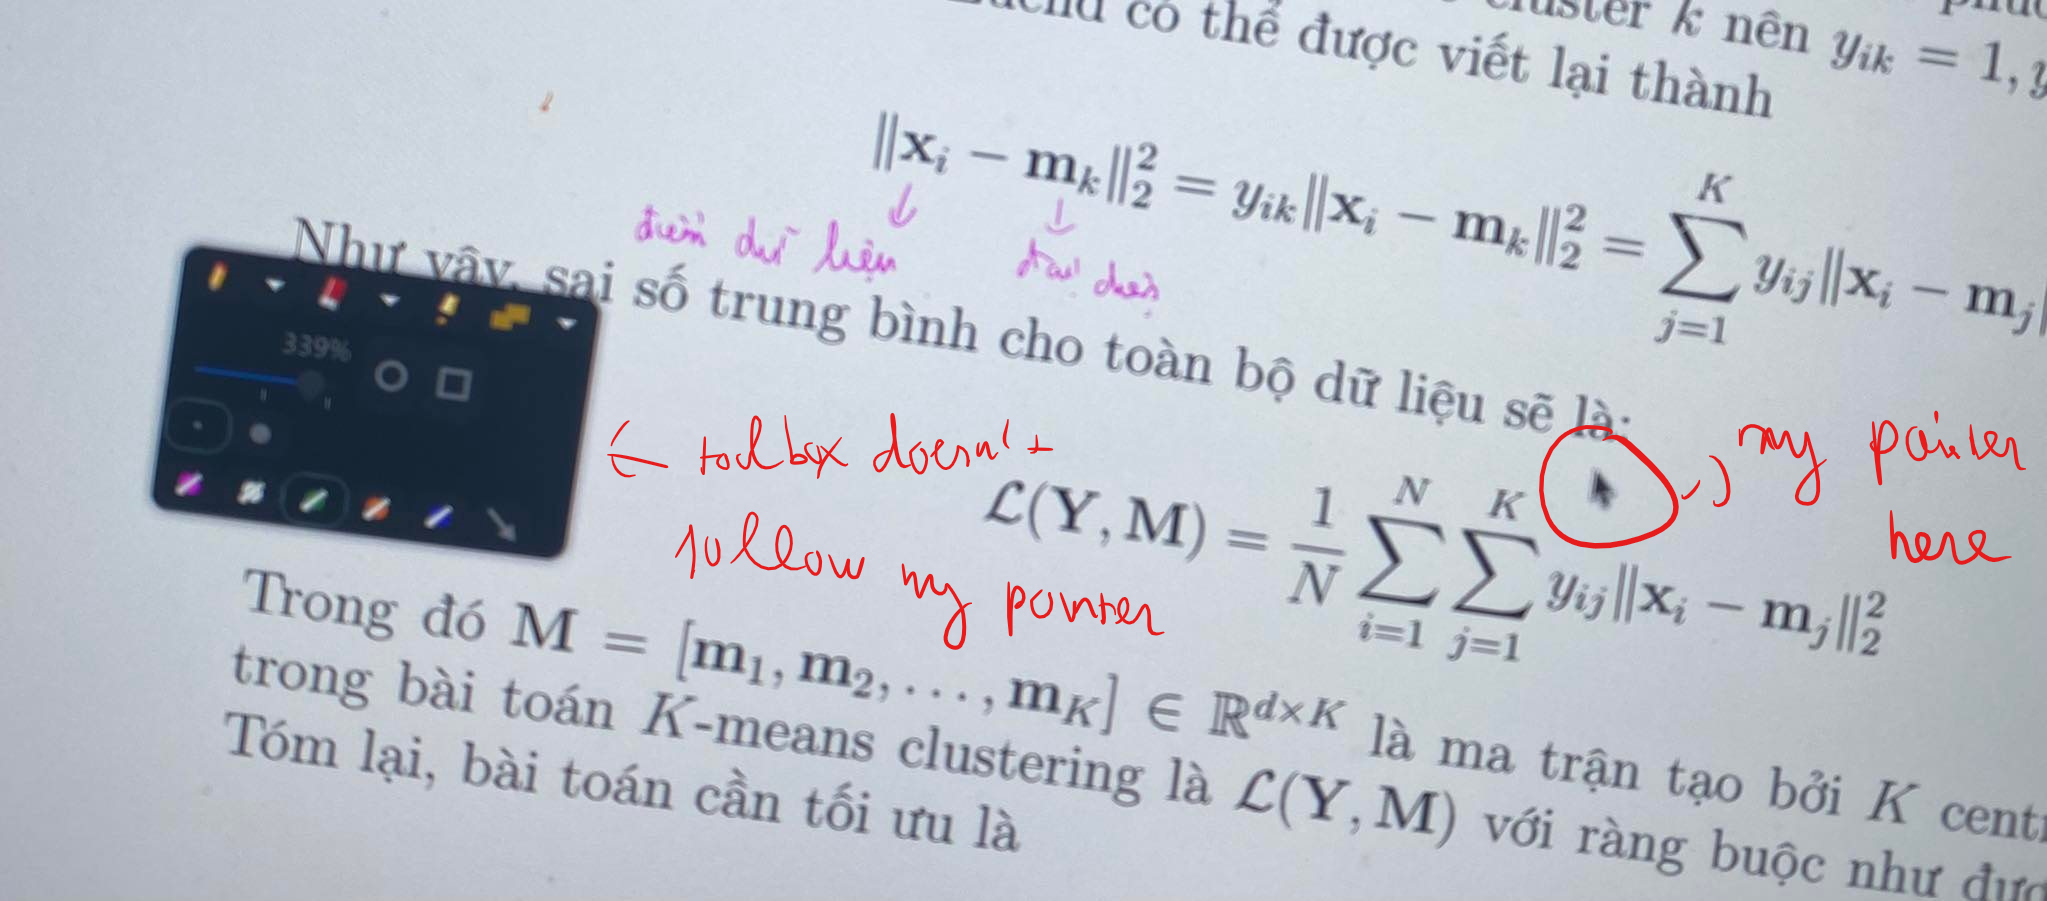 cluster k nên y_{ik} = 1, y
có thể được viết lại thành
‖x_i − m_k‖_2^2 = y_{ik}‖x_i − m_k‖_2^2 = \sum_{j=1}^{K} y_{ij}‖x_i − m_j‖
điểm dữ liệu
đại diện
Như vậy, sai số trung bình cho toàn bộ dữ liệu sẽ là:
339%
← toolbox doesn't
follow my pointer
my pointer
here
ℒ(Y, M) = \frac{1}{N} \sum_{i=1}^{N} \sum_{j=1}^{K} y_{ij}‖x_i − m_j‖_2^2
Trong đó M = [m_1, m_2, . . . , m_K] ∈ ℝ^{d×K} là ma trận tạo bởi K cent
trong bài toán K-means clustering là ℒ(Y, M) với ràng buộc như đư
Tóm lại, bài toán cần tối ưu là